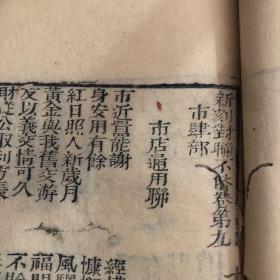 新刻對聯不俗卷第九
市肆部
市店通用聯
市近賣能謝
身安用有餘
紅日照人新歲月
黃金與我舊交游
友以義交情可久
財從公取利方長
經
慷
風
福
不